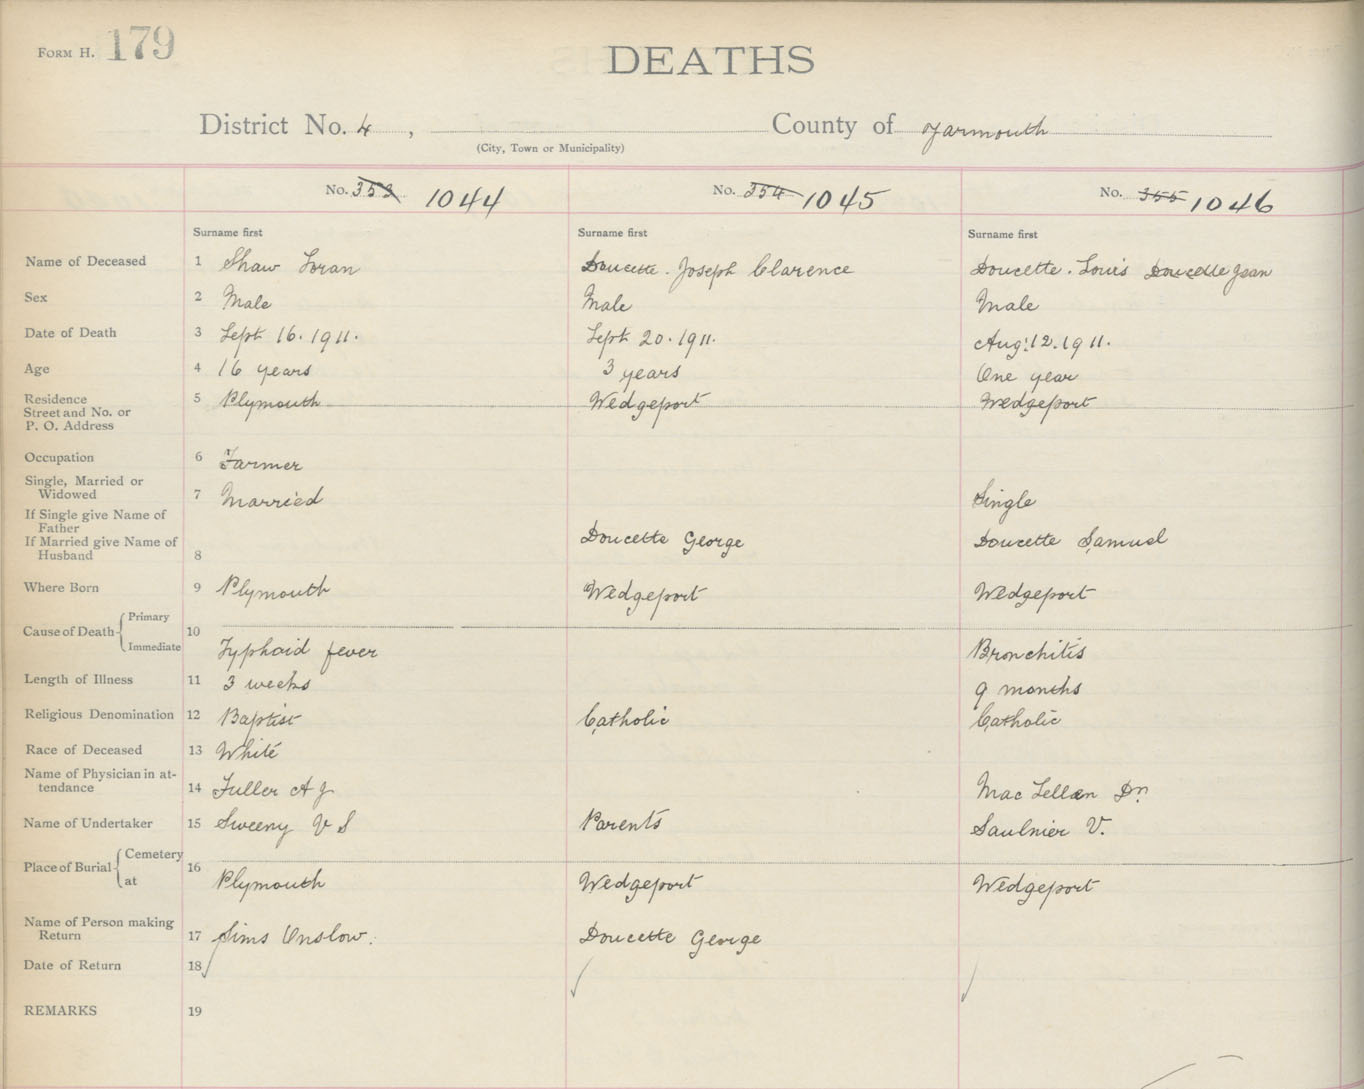 FORM H. 179
DEATHS
District No. 4 , County of Yarmouth
(City, Town or Municipality)
No. 353 1044 No. 354 1045 No. 355 1046
Surname first Surname first Surname first
Name of Deceased 1 Shaw Loran Doucette. Joseph Clarence Doucette. Louis Doucette Jean
Sex 2 Male Male Male
Date of Death 3 Sept 16. 1911. Sept 20. 1911. Aug. 12. 1911.
Age 4 16 years 3 years One year
Residence 5 Plymouth Wedgeport Wedgeport
Street and No. or
P. O. Address
Occupation 6 Farmer
Single, Married or
Widowed 7 Married Single
If Single give Name of
Father
If Married give Name of Doucette George Doucette Samuel
Husband 8
Where Born 9 Plymouth Wedgeport Wedgeport
Primary
Cause of Death 10
Immediate Typhoid fever Bronchitis
Length of Illness 11 3 weeks 9 months
Religious Denomination 12 Baptist Catholic Catholic
Race of Deceased 13 White
Name of Physician in at-
tendance 14 Fuller A J Mac Lellan Dr.
Name of Undertaker 15 Sweeny V S Parents Saulnier V.
Cemetery
Place of Burial 16
at Plymouth Wedgeport Wedgeport
Name of Person making
Return 17 Sims Onslow. Doucette George
Date of Return 18
REMARKS 19